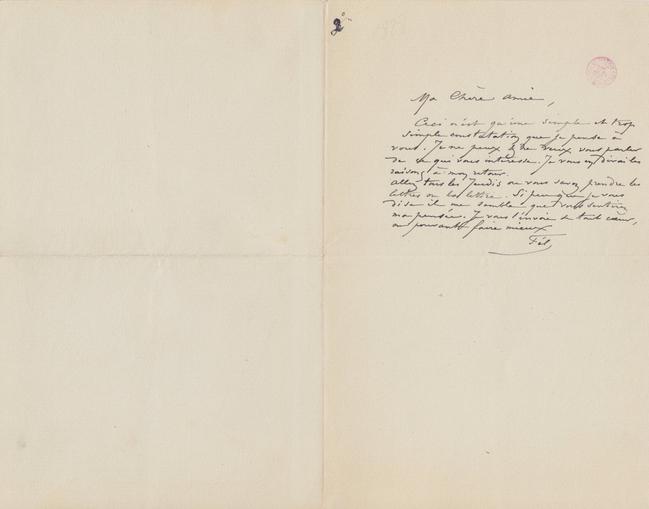 2
Ma Chère amie,
Ceci n'est qu'une simple et trop
simple constatation que je pense à
vous. Je ne peux & ne veux vous parler
de ce qui vous intéresse. Je vous en dirai les
raisons à mon retour.
allez tous les Jeudis où vous savez prendre les
lettres ou la lettre. Si peu que je vous
dise il me semble que vous sentirez
ma pensée. Je vous l'envoie de tout cœur,
ne pouvant faire mieux